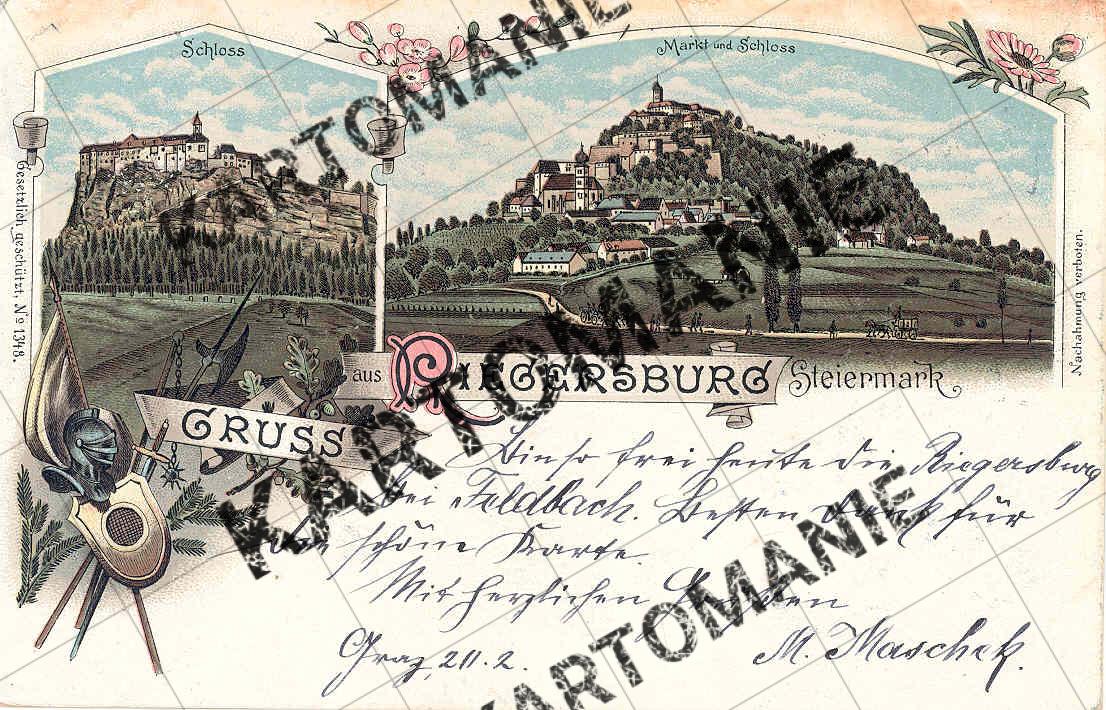 Schloss
Markt und Schloss
Gesetzlich geschützt, No 1348.
Nachahmung verboten.
GRUSS aus RIEGERSBURG Steiermark
Bin so frei heute die Riegersburg
bei Feldbach. Besten Dank für
die schöne Karte.
Mit herzlichen Grüßen
Graz, 20.2. M. Maschek.
KARTOMANIE
KARTOMANIE
KARTOMANIE
KARTOMANIE
KARTOMANIE